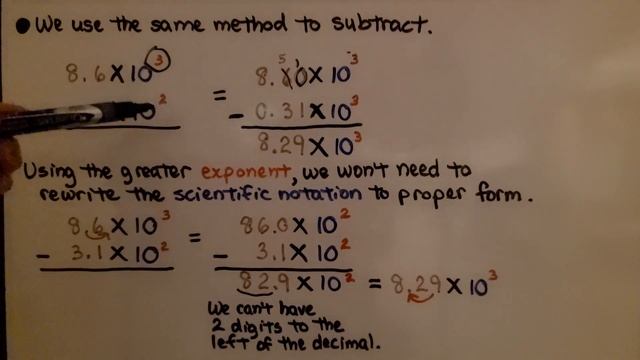 We use the same method to subtract.
8.6 X 10³ = 8.60 X 10³
10² - 0.31 X 10³
8.29 X 10³
Using the greater exponent, we won't need to
rewrite the scientific notation to proper form.
8.6 X 10³ = 86.0 X 10²
- 3.1 X 10² - 3.1 X 10²
82.9 X 10² = 8.29 X 10³
We can't have
2 digits to the
left of the decimal.